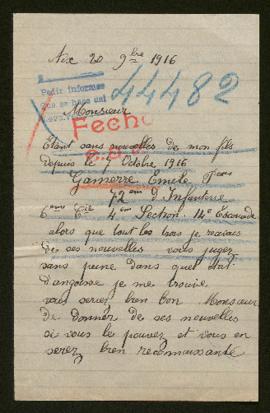 Aix 20 9bre 1916
Pedir informes
que se hace cui
44482
Monsieur
Fecha
Etant sans nouvelles de mon fils
depuis le 7 Octobre 1916
Gamerre Emile
72em d'Infanterie
6eme Cie 4em Section. 14e Escouade
alors que tout les jours je recevais
de ses nouvelles vous jugez
sans peine dans quel état
d'angoisse je me trouve
vous seriez bien bon Monsieur
de donner de ses nouvelles
si vous le pouvez et vous en
serez bien reconnaissante